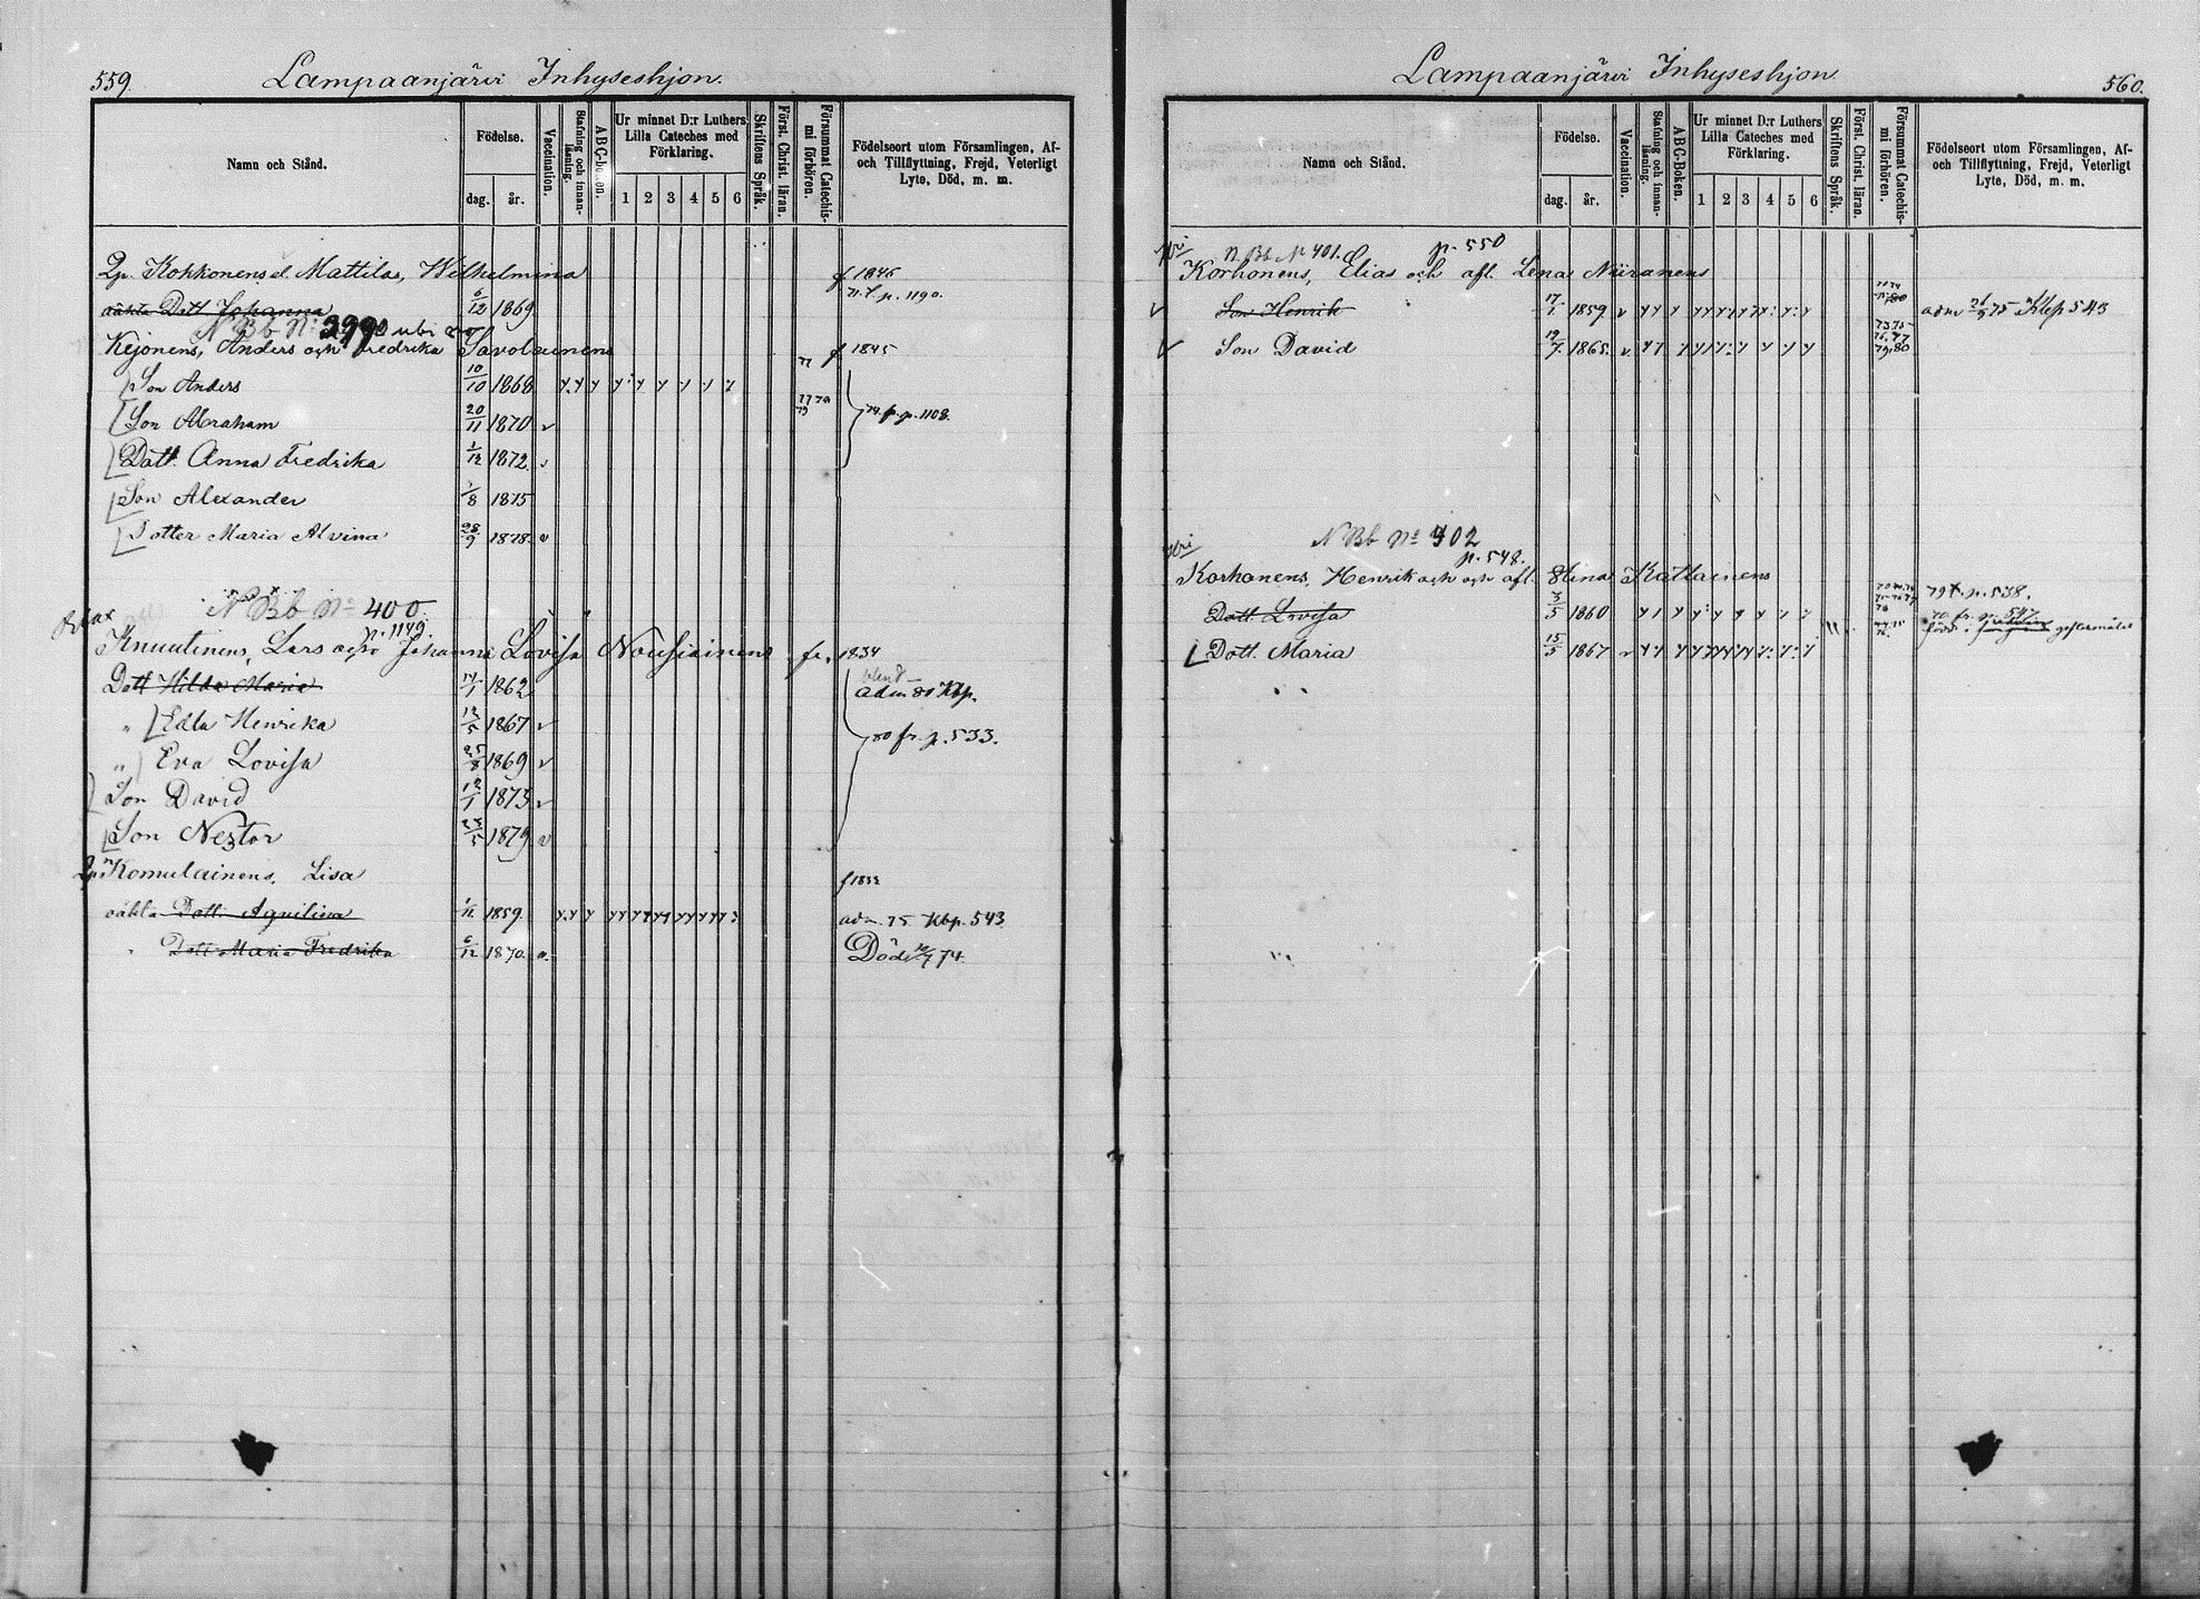 559. Lampaanjärvi Inhyseshjon.
Namn och Stånd.
Födelse.
dag. år.
Vaccination.
Stafning och innan-läsning.
ABC-boken.
Ur minnet D:r Luthers
Lilla Cateches med
Förklaring.
1 2 3 4 5 6
Skriftens Språk.
Först. Christ. läran.
Försummat Catechis-mi förhören.
Födelseort utom Församlingen, Af-
och Tillflyttning, Frejd, Veterligt
Lyte, Död, m. m.
Qp. Kokkonens d. Mattilas, Wilhelmina f 1846
oäkta Dott Johanna 6/12 1869 71 f. p. 1190.
N Bb No: 399 ubi
Kejonens, Anders och Fredrika Savolainens f 1845
Son Anders 10/10 1868 77
Son Abraham 20/11 1870 v 74 fr. p. 1108.
Dott. Anna Fredrika 1/12 1872
Son Alexander /8 1875
Dotter Maria Alvina 28/9 1878. v
N Bb No 400.
p. 1149.
Knuutinens, Lars och Johanna Lovisa Nousiainens fr. 1834
Dott Hilda Maria 14/1 1862 adm 80 Kbp.
" Edla Henrika 12/5 1867 v 80 fr. p. 533.
" Eva Lovisa 25/8 1869 v
Son David 12/1 1873 v
Son Nestor 23/5 1879 v
Qp. Komulainens, Lisa f 1832
oäkta Dott. Aquilina 1/11 1859 adm. 75 Kbp. 543
Dott Maria Fredrika 6/12 1870. v. Död 74.
Lampaanjärvi Inhyseshjon 560.
Namn och Stånd.
Födelse.
dag. år.
Vaccination.
Stafning och innan-läsning.
ABC-Boken.
Ur minnet D:r Luthers
Lilla Cateches med
Förklaring.
1 2 3 4 5 6
Skriftens Språk.
Först. Christ. läran.
Försummat Catechis-mi förhören.
Födelseort utom Församlingen, Af-
och Tillflyttning, Frejd, Veterligt
Lyte, Död, m. m.
ubi N. Bb No 401. p. 550
Korhonens, Elias och afl. Lena Niiranens
v Son Henrik 17/1 1859 v adm 75 Kbp 543
v Son David 19/7 1865. v.
N Bb No 402
ubi p. 548.
Korhonens, Henrik och afl. Stina Kattainens
Dott Lovisa 3/5 1860 79 f. p. 538.
70 fr. p. 547
Dott. Maria 15/5 1867 född i